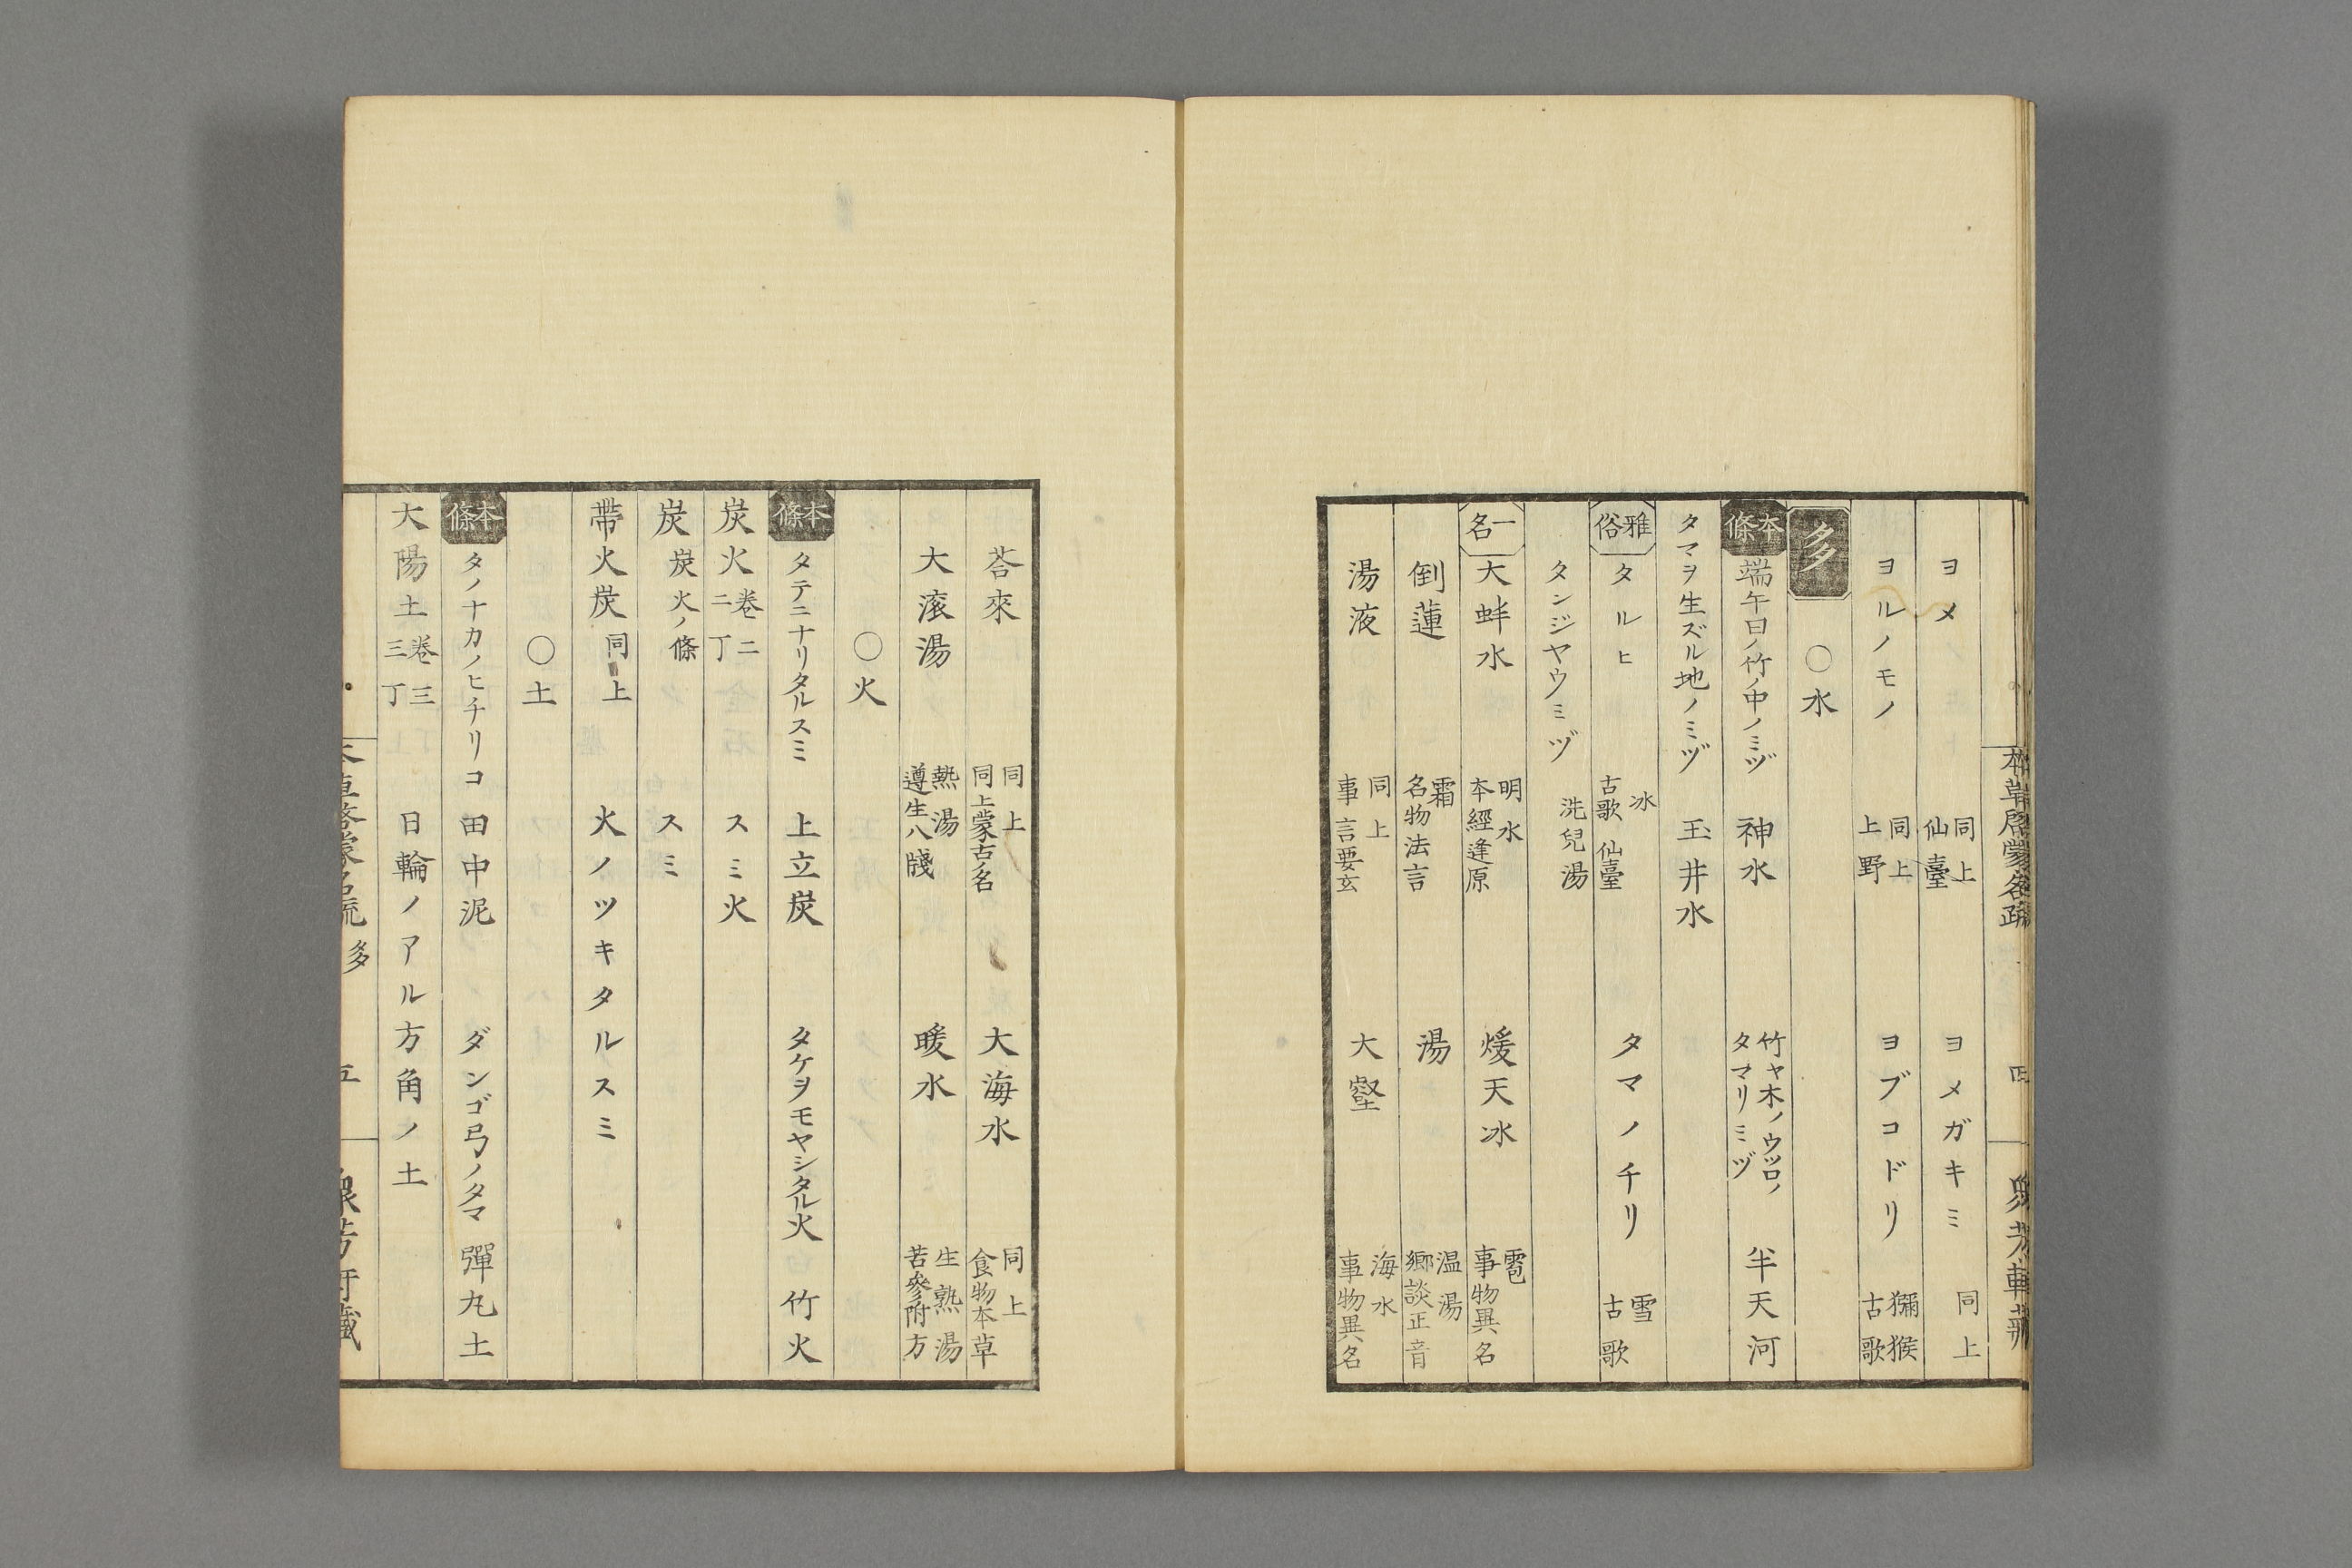 本草啓蒙名疏
四
ヨメ 同上 仙臺 ヨメガキミ 同上
ヨルノモノ 同上 上野 ヨブコドリ 獼猴 古歌
多 ○水
本條 端午日ノ竹ノ中ノミヅ 神水 竹ヤ木ノウツロノタマリミヅ 半天河
タマヲ生ズル地ノミヅ 玉井水
雅俗 タルヒ 冰 古歌 仙臺 タマノチリ 雪 古歌
タンジヤウミヅ 洗兒湯
一名 大蚌水 明水 本經逢原 煖天冰 雹 事物異名
倒蓮 霜 名物法言 湯 温湯 郷談正音
湯液 同上 事言要玄 大壑 海水 事物異名
荅來 同上 同上蒙古ノ名 大海水 同上 食物本草
大滚湯 熱湯 遵生八牋 暖水 生熟湯 苦參附方
○火
本條 タテニナリタルスミ 上立炭 タケヲモヤシタル火 竹火
炭火 卷二 二丁 スミ火
炭 炭火ノ條 スミ
帶火炭 同上 火ノツキタルスミ
○土
本條 タノナカノヒチリコ 田中泥 ダンゴ弓ノタマ 彈丸土
大陽土 卷三 三丁 日輪ノアル方角ノ土
本草啓蒙名疏 多
五